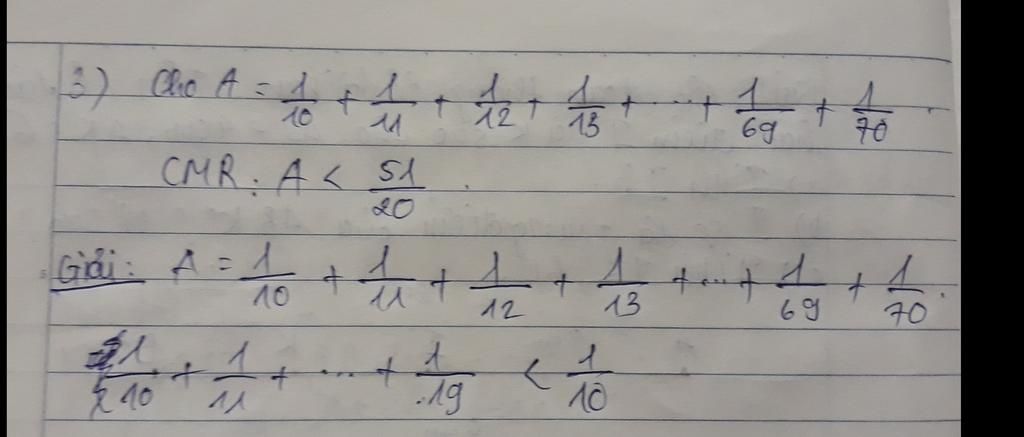 3) Cho A = 1/10 + 1/11 + 1/12 + 1/13 + ... + 1/69 + 1/70.
CMR: A < 51/20.
Giải: A = 1/10 + 1/11 + 1/12 + 1/13 + ... + 1/69 + 1/70.
1/10 + 1/11 + ... + 1/19 < 1/10